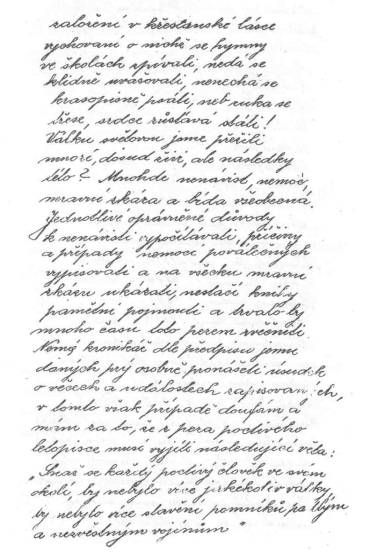 založení v křesťanské lásce
vychovaní o nichž se hymny
ve školách zpívali, nedá se
klidně uvažovali, nenechá se
krasopisně psáli, neb ruka se
třese, srdce zůstává státi!
Válku světovou jsme přežili
mnozí, dosud živí, ale následky
této? Mnohde nenávist, nemoc,
mravní zkáza a bída všeobecná.
Jednotlivé oprávněné důvody
k nenávisti vypočítávati, příčiny
a případy nemocí poválečných
vypisovati a na všecku mravní
zkázu ukázati, nestačí knihy
pamětní pojmouti a trvalo by
mnoho času toto perem zvěčniti.
Nemá kronikář dle předpisu jemu
daných prý osobně pronášeti úsudek
o věcech a událostech zapisovaných,
v tomto však případě doufám a
mám za to, že z pera poctivého
letopisce musí vyjíti následující věta:
„Snaž se každý poctivý člověk ve svém
okolí, by nebylo více jakékoliv války,
by nebylo více stavění pomníků padlým
a nezvěstným vojínům"